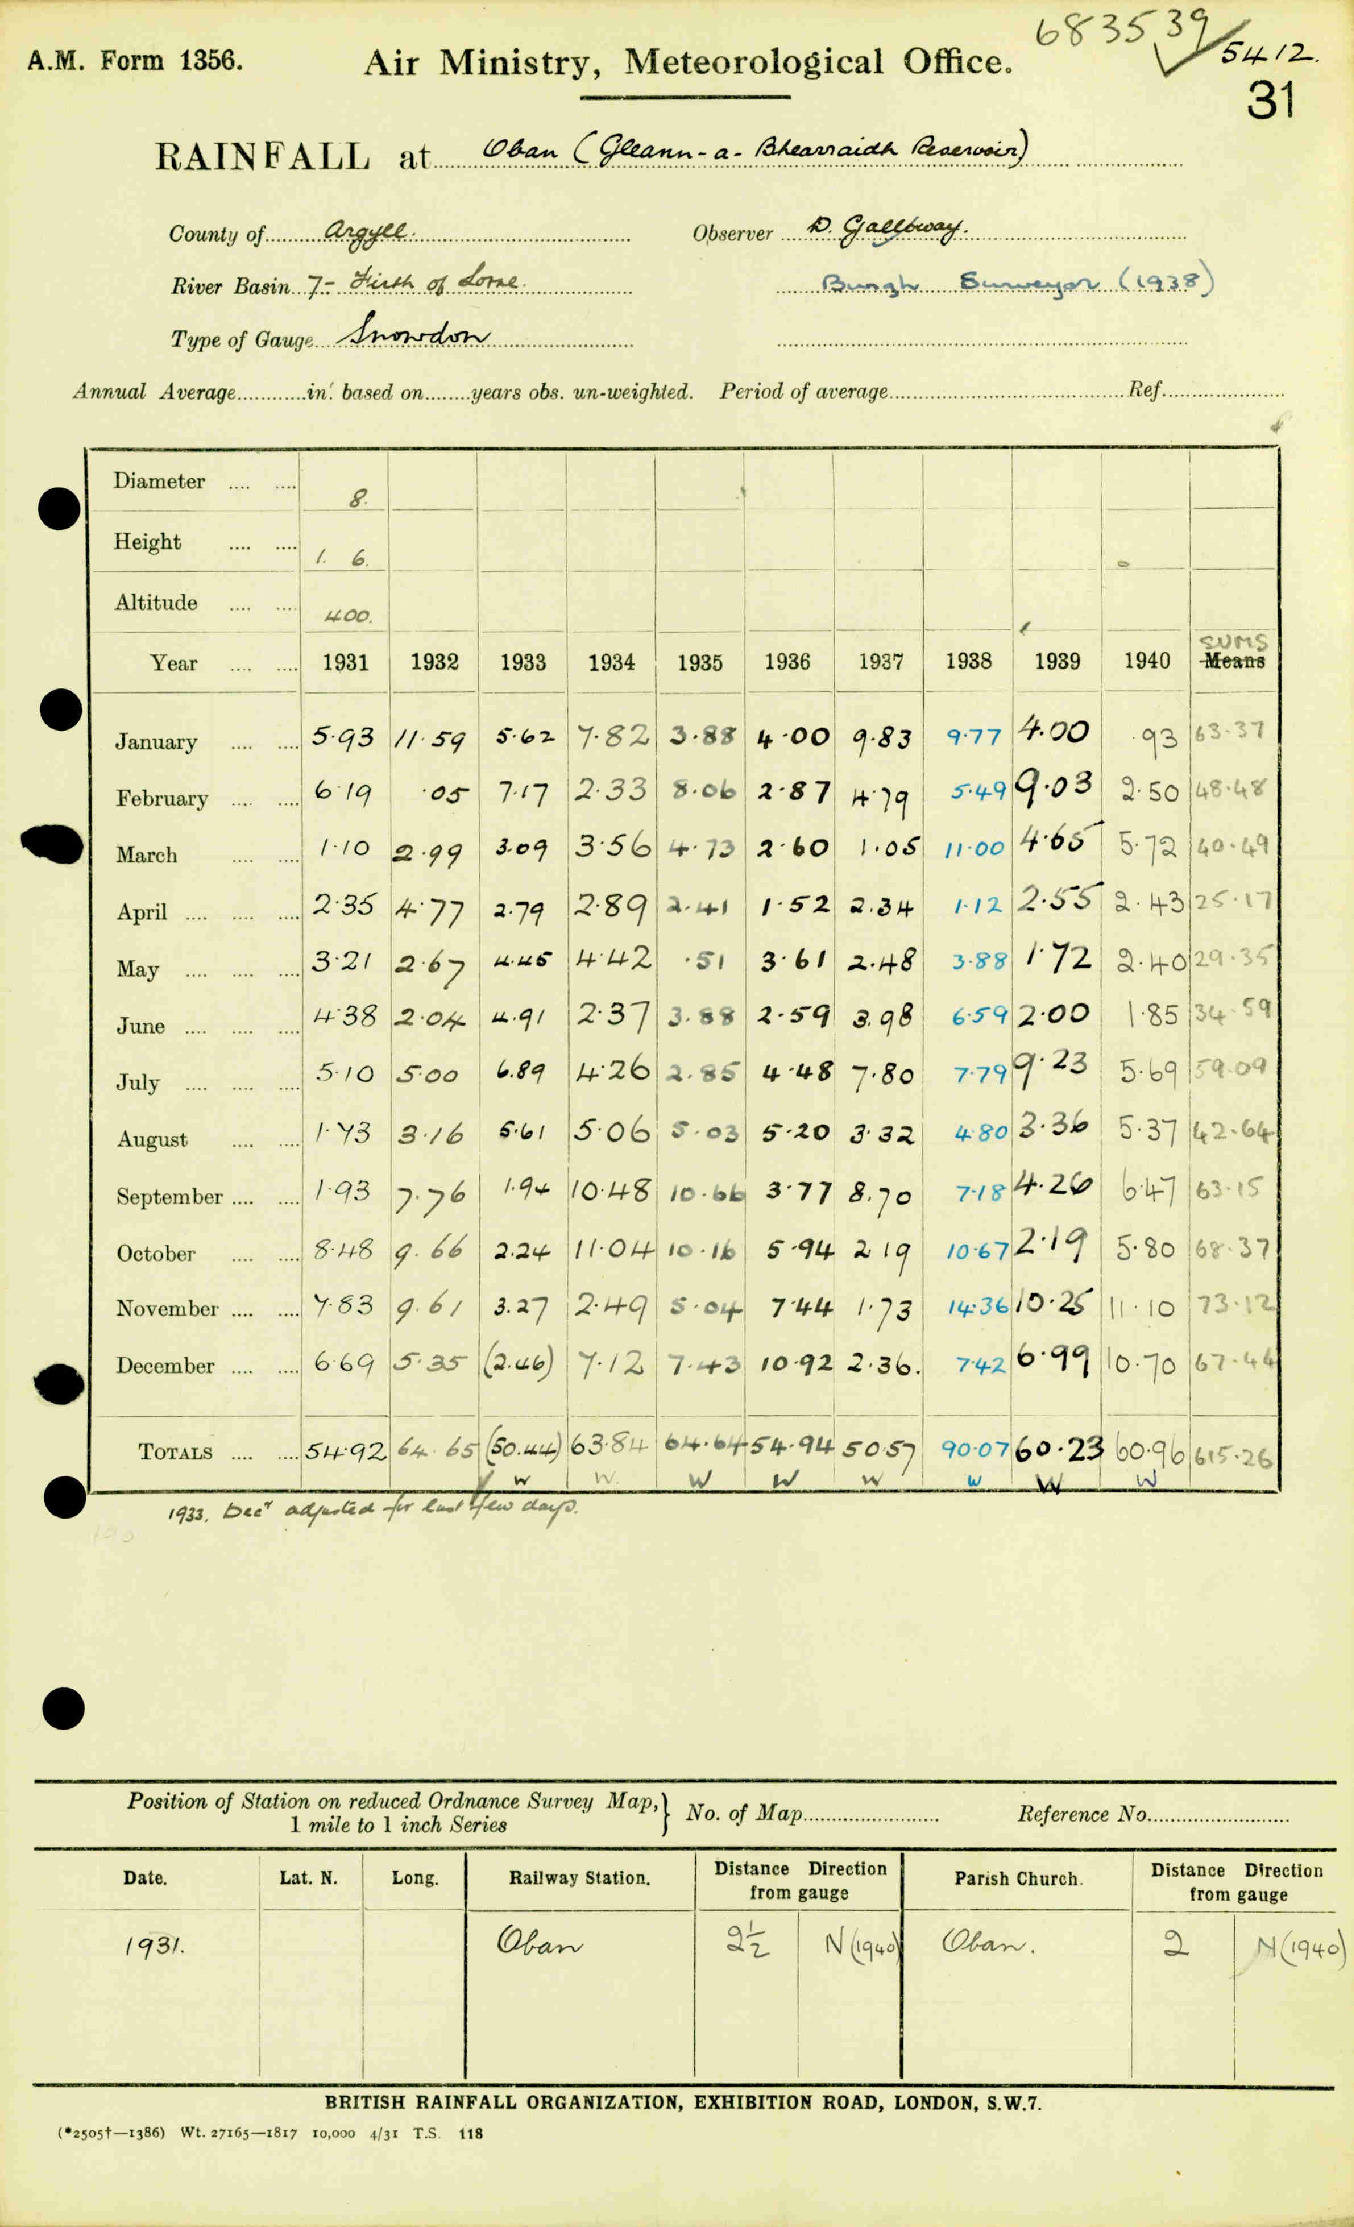 683539
5412.
31
A.M. Form 1356.
Air Ministry, Meteorological Office.
RAINFALL at Oban (Gleann-a-Bhearraidh Reservoir)
County of Argyll. Observer D. Galloway.
River Basin 7- Firth of Lorne. Burgh Surveyor (1938)
Type of Gauge Snowdon
Annual Average in. based on years obs. un-weighted. Period of average Ref.
Diameter 8.
Height 1. 6.
Altitude 400.
SUMS
Year 1931 1932 1933 1934 1935 1936 1937 1938 1939 1940 Means
January 5.93 11.59 5.62 7.82 3.88 4.00 9.83 9.77 4.00 .93 63.37
February 6.19 .05 7.17 2.33 8.06 2.87 4.79 5.49 9.03 2.50 48.48
March 1.10 2.99 3.09 3.56 4.73 2.60 1.05 11.00 4.65 5.72 40.49
April 2.35 4.77 2.79 2.89 2.41 1.52 2.34 1.12 2.55 2.43 25.17
May 3.21 2.67 4.45 4.42 .51 3.61 2.48 3.88 1.72 2.40 29.35
June 4.38 2.04 4.91 2.37 3.88 2.59 3.98 6.59 2.00 1.85 34.59
July 5.10 5.00 6.89 4.26 2.85 4.48 7.80 7.79 9.23 5.69 59.09
August 1.73 3.16 5.61 5.06 5.03 5.20 3.32 4.80 3.36 5.37 42.64
September 1.93 7.76 1.94 10.48 10.66 3.77 8.70 7.18 4.26 6.47 63.15
October 8.48 9.66 2.24 11.04 10.16 5.94 2.19 10.67 2.19 5.80 68.37
November 7.83 9.61 3.27 2.49 5.04 7.44 1.73 14.36 10.25 11.10 73.12
December 6.69 5.35 (2.46) 7.12 7.43 10.92 2.36. 7.42 6.99 10.70 67.44
TOTALS 54.92 64.65 (50.44) 63.84 64.64 54.94 50.57 90.07 60.23 60.96 615.26
W W W W W W W W
1933. Decr adjusted for last few days.
Position of Station on reduced Ordnance Survey Map, 1 mile to 1 inch Series } No. of Map Reference No.
Date. Lat. N. Long. Railway Station. Distance Direction from gauge Parish Church. Distance Direction from gauge
1931. Oban 2½ N (1940) Oban. 2 N (1940)
BRITISH RAINFALL ORGANIZATION, EXHIBITION ROAD, LONDON, S.W.7.
(*2505†—1386) Wt. 27165—1817 10,000 4/31 T.S. 118